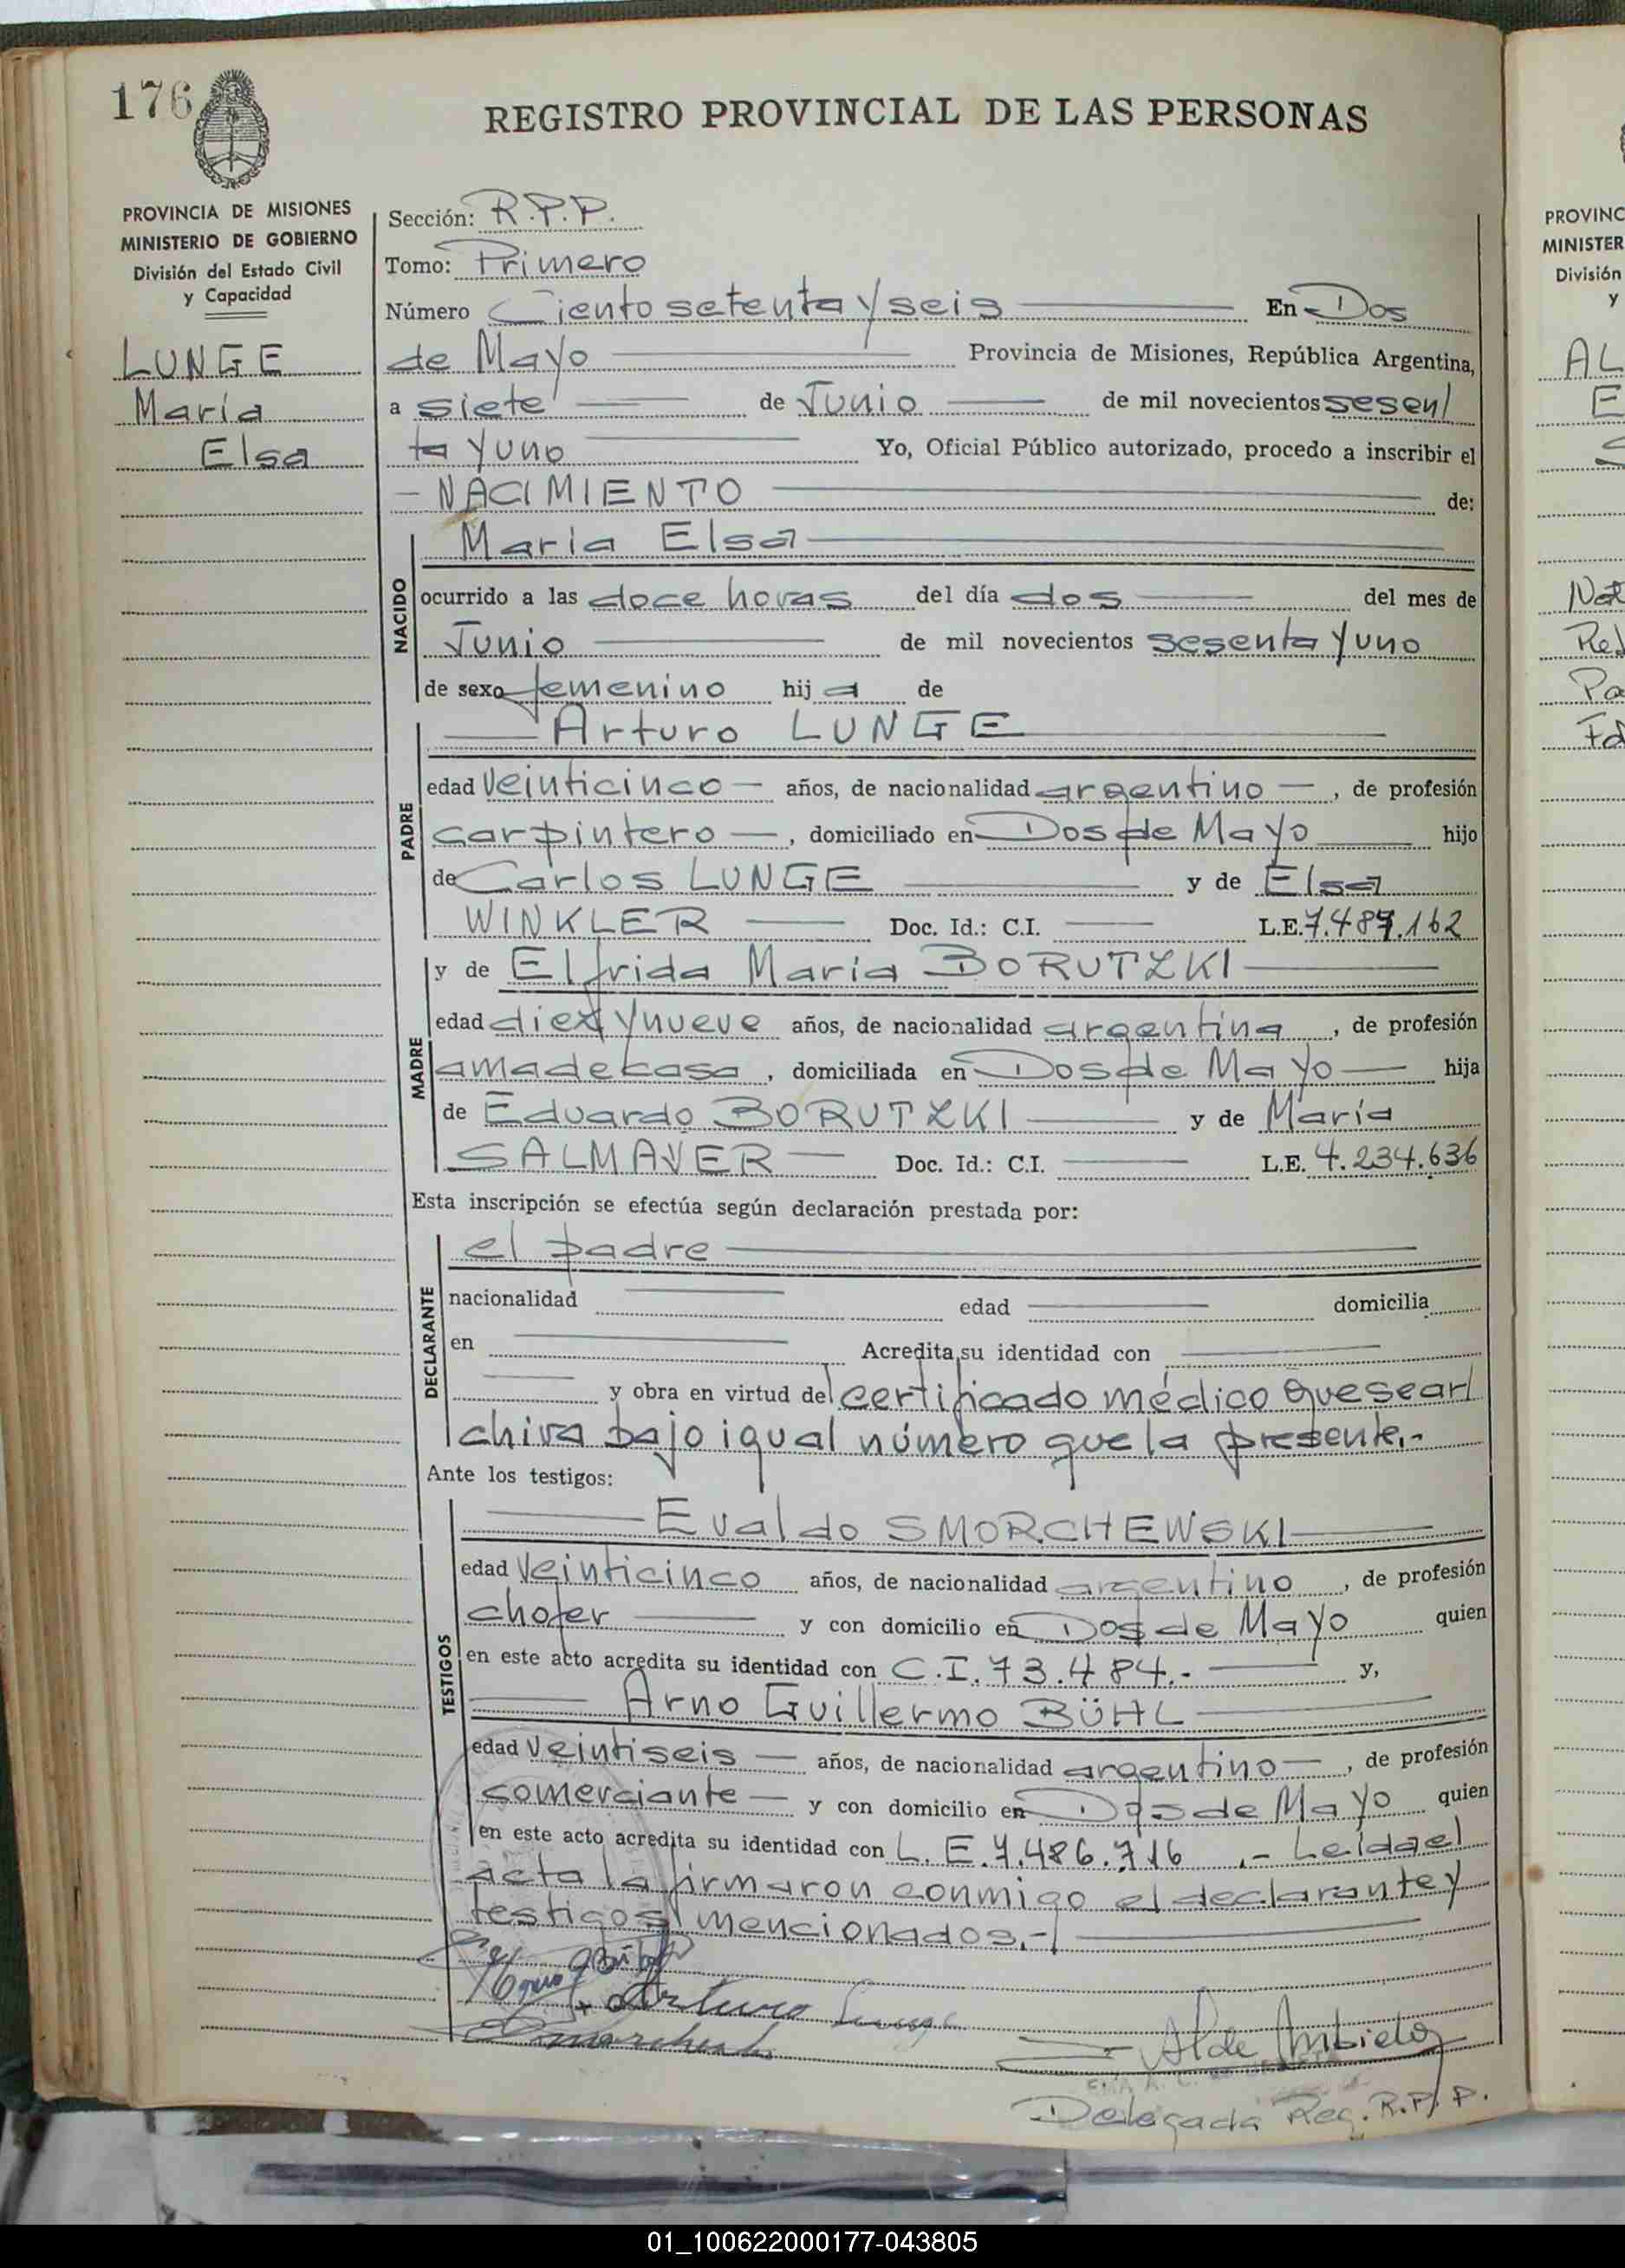 176
REGISTRO PROVINCIAL DE LAS PERSONAS
PROVINCIA DE MISIONES
MINISTERIO DE GOBIERNO
División del Estado Civil
y Capacidad
LUNGE
María
Elsa
Sección: R.P.P.
Tomo: Primero
Número Ciento setenta y seis En Dos
de Mayo Provincia de Misiones, República Argentina,
a siete de Junio de mil novecientos sesen/
ta y uno Yo, Oficial Público autorizado, procedo a inscribir el
- NACIMIENTO de:
NACIDO
María Elsa
ocurrido a las doce horas del día dos del mes de
Junio de mil novecientos sesenta y uno
de sexo femenino hija de
PADRE
Arturo LUNGE
edad veinticinco años, de nacionalidad argentino, de profesión
carpintero, domiciliado en Dos de Mayo hijo
de Carlos LUNGE y de Elsa
WINKLER Doc. Id.: C.I. L.E. 7.487.162
MADRE
y de Elfrida María BORUTZKI
edad diez y nueve años, de nacionalidad argentina, de profesión
ama de casa, domiciliada en Dos de Mayo hija
de Eduardo BORUTZKI y de María
SALMAYER Doc. Id.: C.I. L.E. 4.234.636
Esta inscripción se efectúa según declaración prestada por:
DECLARANTE
el padre
nacionalidad edad domicilia
en Acredita su identidad con
y obra en virtud del certificado médico que se ar/
chiva bajo igual número que la presente.-
Ante los testigos:
TESTIGOS
Evaldo SMORCHEWSKI
edad veinticinco años, de nacionalidad argentino, de profesión
chofer y con domicilio en Dos de Mayo quien
en este acto acredita su identidad con C.I. 73.484.- y,
Arno Guillermo BÜHL
edad veintiseis años, de nacionalidad argentino, de profesión
comerciante y con domicilio en Dos de Mayo quien
en este acto acredita su identidad con L.E. 7.486.716 .- Leída el
acta la firmaron conmigo el declarante y
testigos mencionados.-
Arturo Lunge
Delegada Reg. R.P.P.
PROVINC
MINISTER
División
y
AL
E
01_100622000177-043805